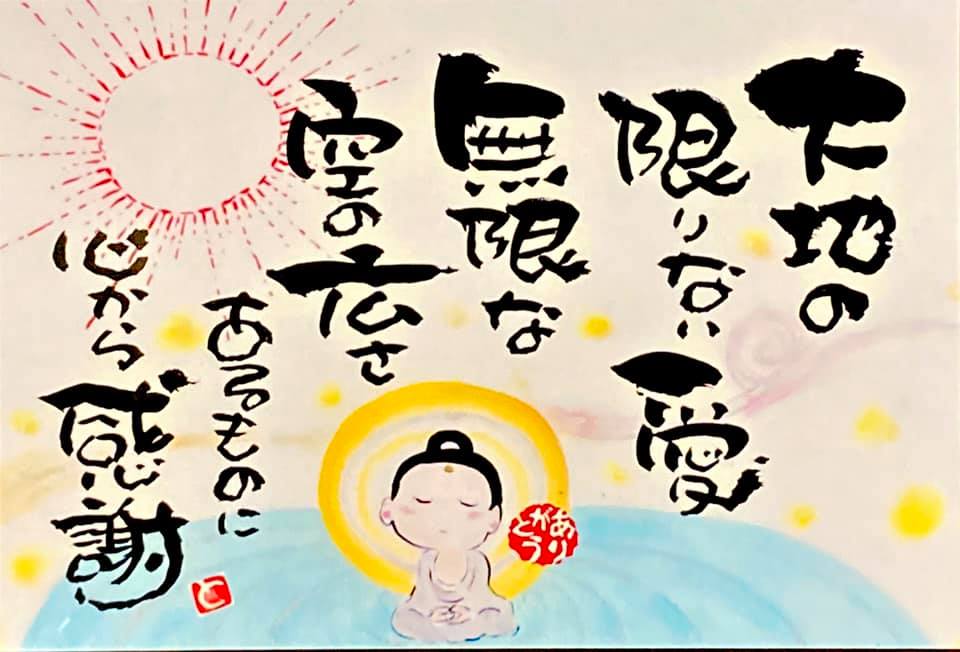 大地の
限りない愛
無限な
空の広さ
あるものに
心から感謝
ありがとう
と